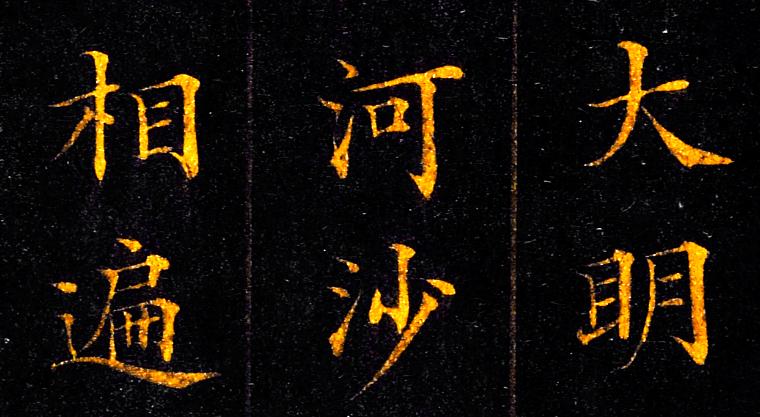 大眀
河沙
相遍